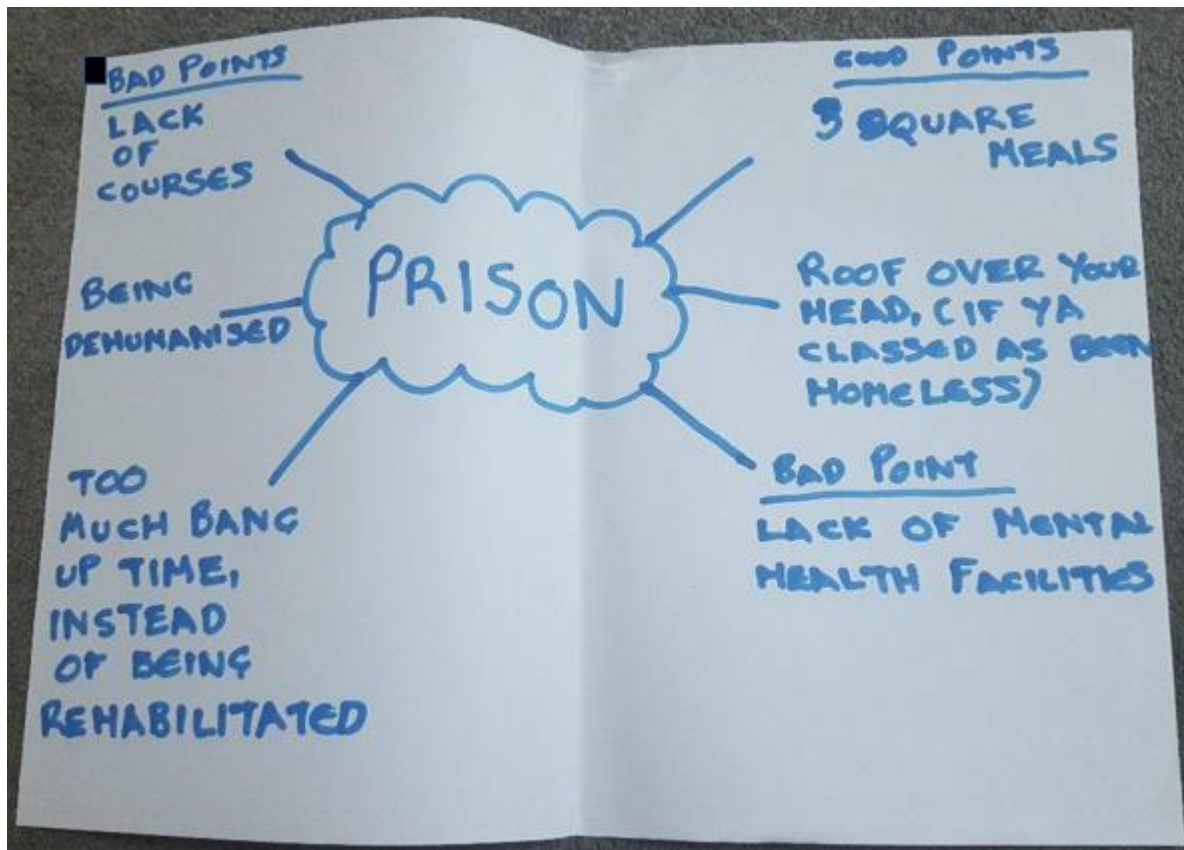 BAD POINTS
LACK
OF
COURSES
BEING
DEHUMANISED
TOO
MUCH BANG
UP TIME,
INSTEAD
OF BEING
REHABILITATED
PRISON
GOOD POINTS
3 SQUARE
MEALS
ROOF OVER YOUR
HEAD, (IF YA
CLASSED AS BEEN
HOMELESS)
BAD POINT
LACK OF MENTAL
HEALTH FACILITIES